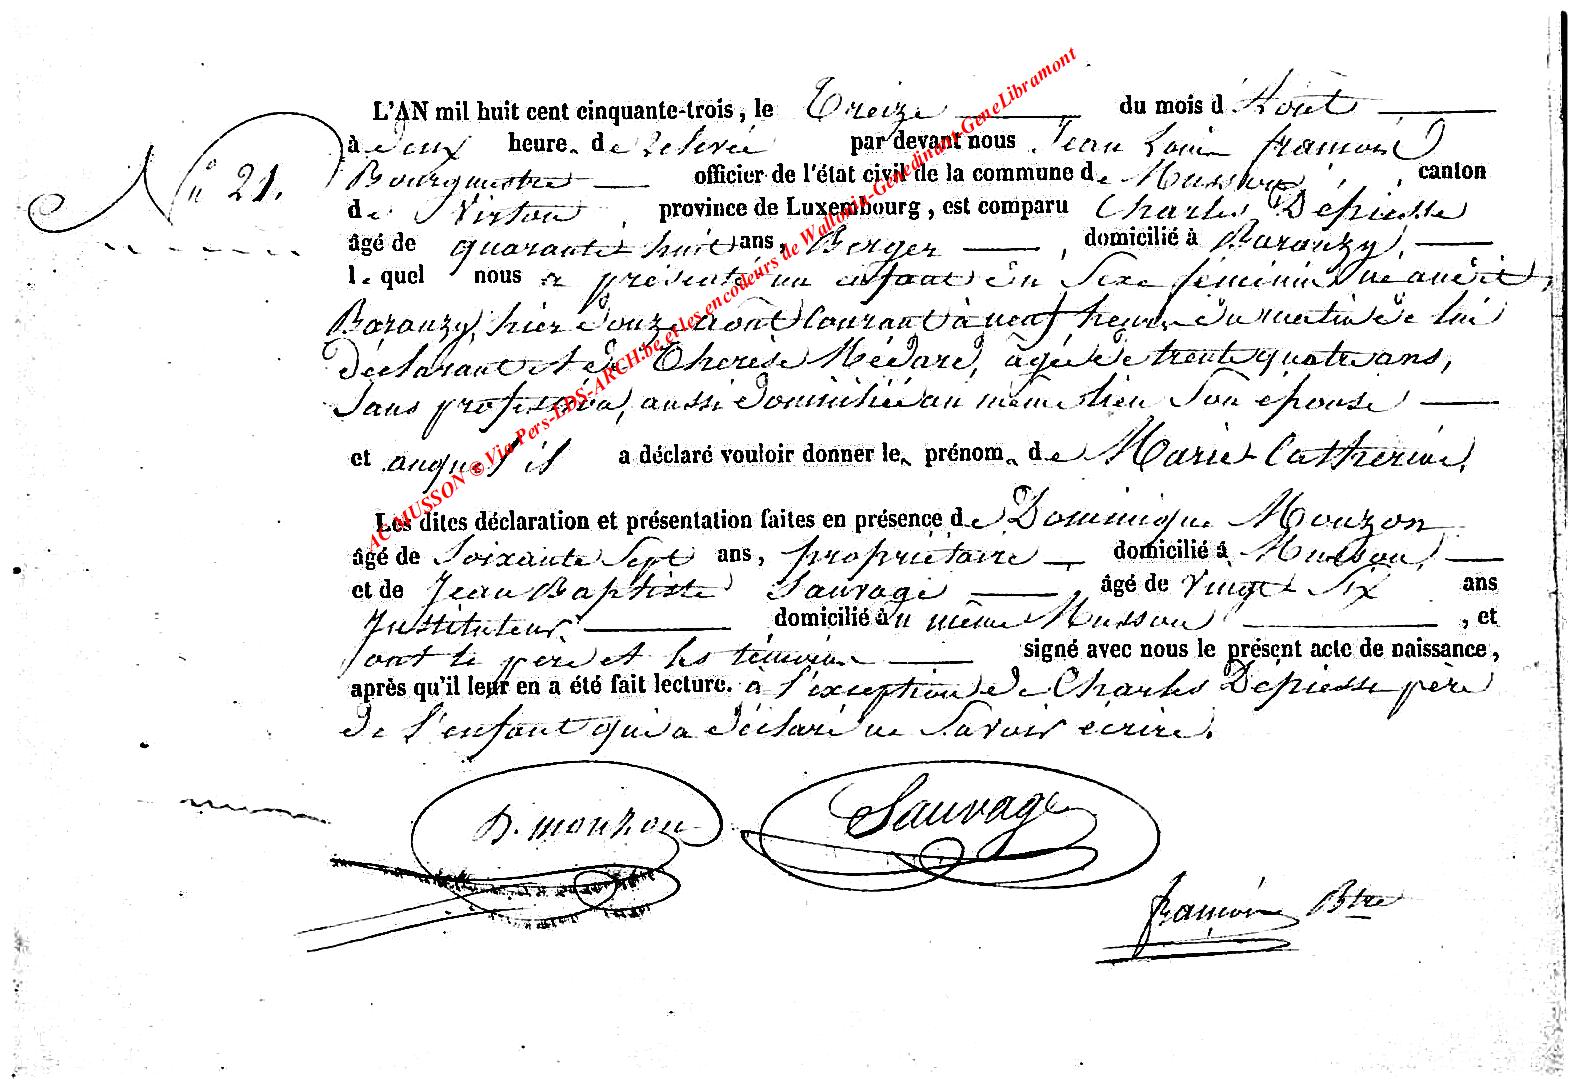 L'AN mil huit cent cinquante-trois, le Treize du mois d'Août
à deux heure. de relevée par devant nous Jean Louis François
N° 21. Bourgmestre officier de l'état civil de la commune de Musson, canton
de Virton, province de Luxembourg, est comparu Charles Depiesse
âgé de quarante huit ans, Berger, domicilié à Baranzy,
lequel nous a présenté un enfant du Sexe féminin né audit
Baranzy, hier douze août Courant à neuf heures du matin de lui
déclarant et de Thérèse Médard, âgée de trente quatre ans,
Sans profession, aussi domiciliée au même lieu Son épouse
et auquel il a déclaré vouloir donner le prénom de Marie Catherine.
Les dites déclaration et présentation faites en présence de Dominique Mouzon
âgé de Soixante Sept ans, propriétaire, domicilié à Musson,
et de Jean Baptiste Sauvage âgé de Vingt Six ans
Instituteur, domicilié au même Musson, et
ont le père et les témoins signé avec nous le présent acte de naissance,
après qu'il leur en a été fait lecture. à l'exception de Charles Depiesse père
de l'enfant qui a déclaré ne Savoir écrire.
D. mouzon Sauvage
François Btre
AC MUSSON © Via Pers-LDS-ARCH.be et les encodeurs de Wallonia-Genedinant-GeneLibramont